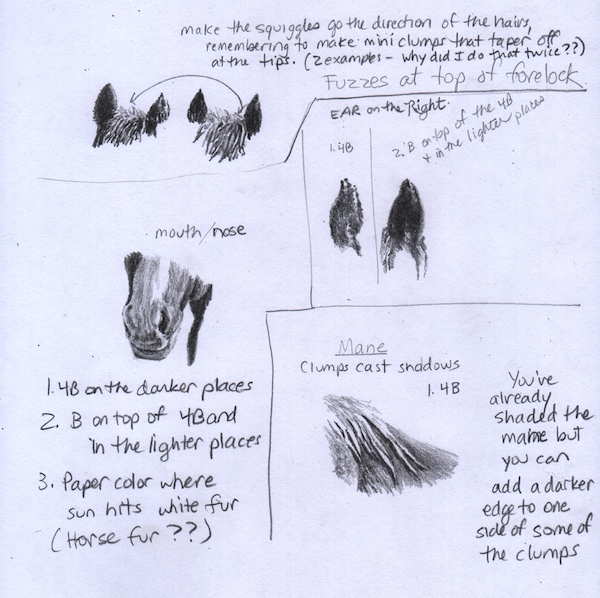 make the squiggles go the direction of the hairs,
remembering to make mini clumps that taper off
at the tips. (2 examples - why did I do that twice??)
Fuzzes at top of forelock
EAR on the Right.
1. 4B
2. B on top of the 4B
+ in the lighter places
mouth/nose
1. 4B on the darker places
2. B on top of 4B and
in the lighter places
3. Paper color where
sun hits white fur
(Horse fur ??)
Mane
Clumps cast shadows
1. 4B
You've
already
shaded the
mane but
you can
add a darker
edge to one
side of some of
the clumps